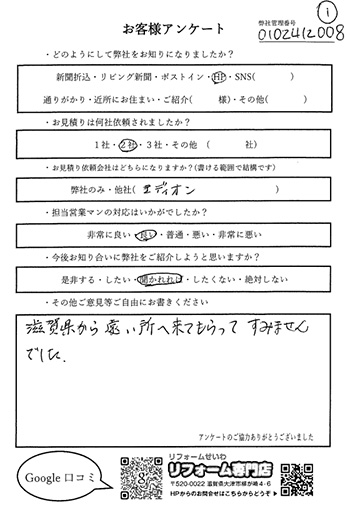 ①
お客様アンケート
弊社管理番号
0102412008
・どのようにして弊社をお知りになりましたか？
新聞折込・リビング新聞・ポストイン・HP・SNS(　　　)
通りがかり・近所にお住まい・ご紹介(　　　様)・その他(　　　)
・お見積りは何社依頼されましたか？
1社・2社・3社・その他　(　　　社)
・お見積り依頼会社はどちらになりますか？(書ける範囲で結構です)
弊社のみ・他社(　エディオン　)
・担当営業マンの対応はいかがでしたか？
非常に良い・良い・普通・悪い・非常に悪い
・今後お知り合いに弊社をご紹介しようと思いますか？
是非する・したい・聞かれれば・したくない・絶対しない
・その他ご意見等ご自由にお書きください
滋賀県から遠い所へ来てもらってすみません
でした.
アンケートのご協力ありがとうございました
Google口コミ
リフォームせいわ
リフォーム専門店
〒520-0022 滋賀県大津市柳が崎4-6
HPからのお問合せはこちらからどうぞ